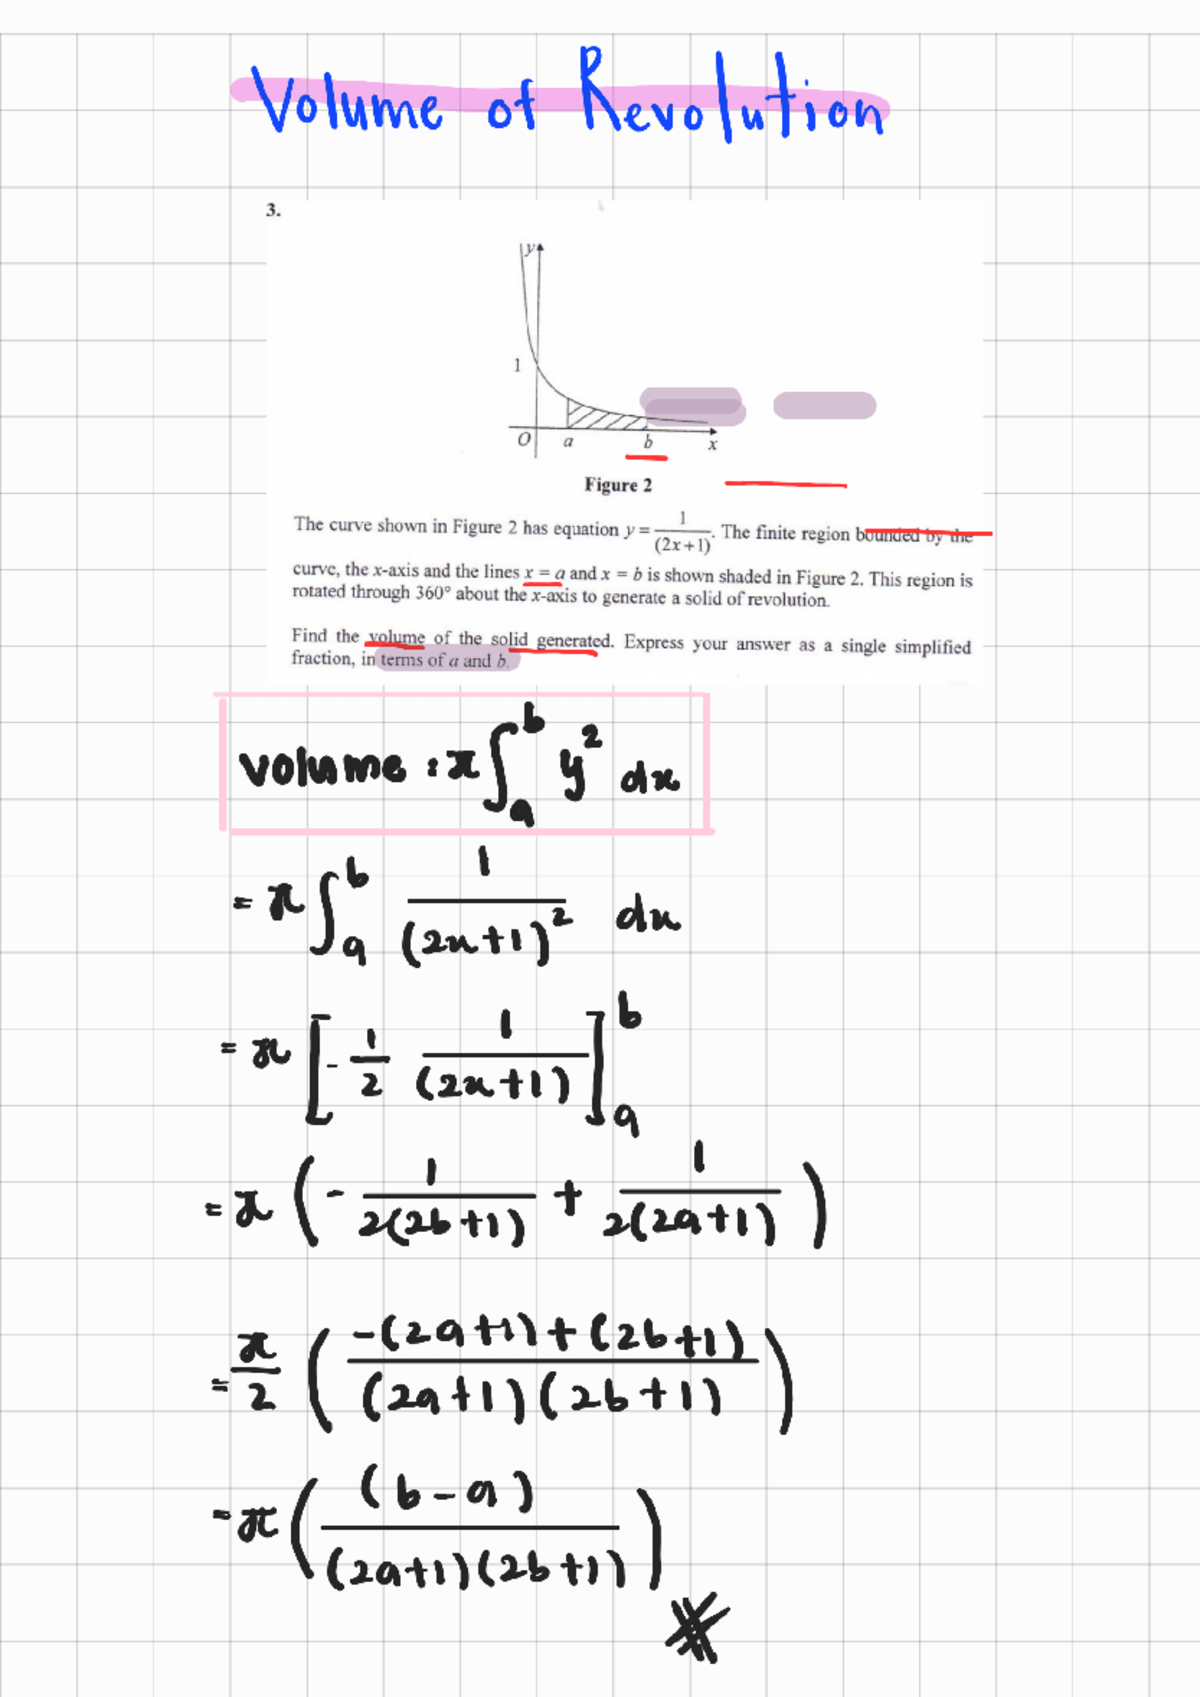 Volume of Revolution
3.
y
1
O a b x
Figure 2
The curve shown in Figure 2 has equation y = 1/(2x+1). The finite region bounded by the
curve, the x-axis and the lines x = a and x = b is shown shaded in Figure 2. This region is
rotated through 360° about the x-axis to generate a solid of revolution.
Find the volume of the solid generated. Express your answer as a single simplified
fraction, in terms of a and b.
volume : π ∫_a^b y² dx
= π ∫_a^b 1/(2x+1)² dx
= π [ - 1/2 1/(2x+1) ]_a^b
= π ( - 1/2(2b+1) + 1/2(2a+1) )
= π/2 ( -(2a+1)+(2b+1) / (2a+1)(2b+1) )
= π ( (b-a) / (2a+1)(2b+1) )